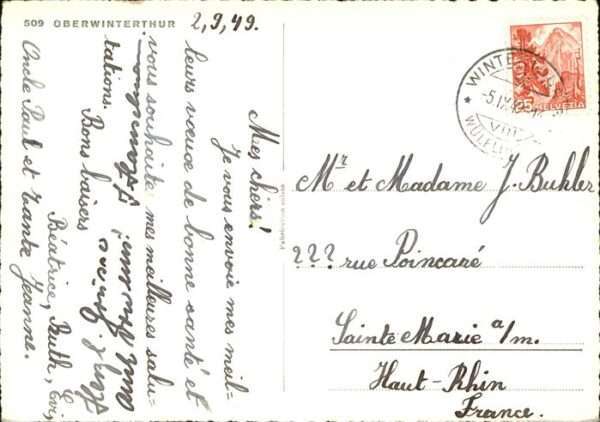 509 OBERWINTERTHUR
2,9,49.
Mes chers!
Je vous envoie mes meil-
leurs vœux de bonne santé et
vous souhaite mes meilleures salu-
tations.
Bons baisers
Béatrice, Ruth, Evi,
Oncle Paul et Tante Jeanne.
WINTERTHUR
-5.IX.49
VIII
WÜLFLINGEN
25
HELVETIA
Mr et Madame J. Buhler
??? rue Poincaré
Sainte Marie a/m.
Haut-Rhin
France.